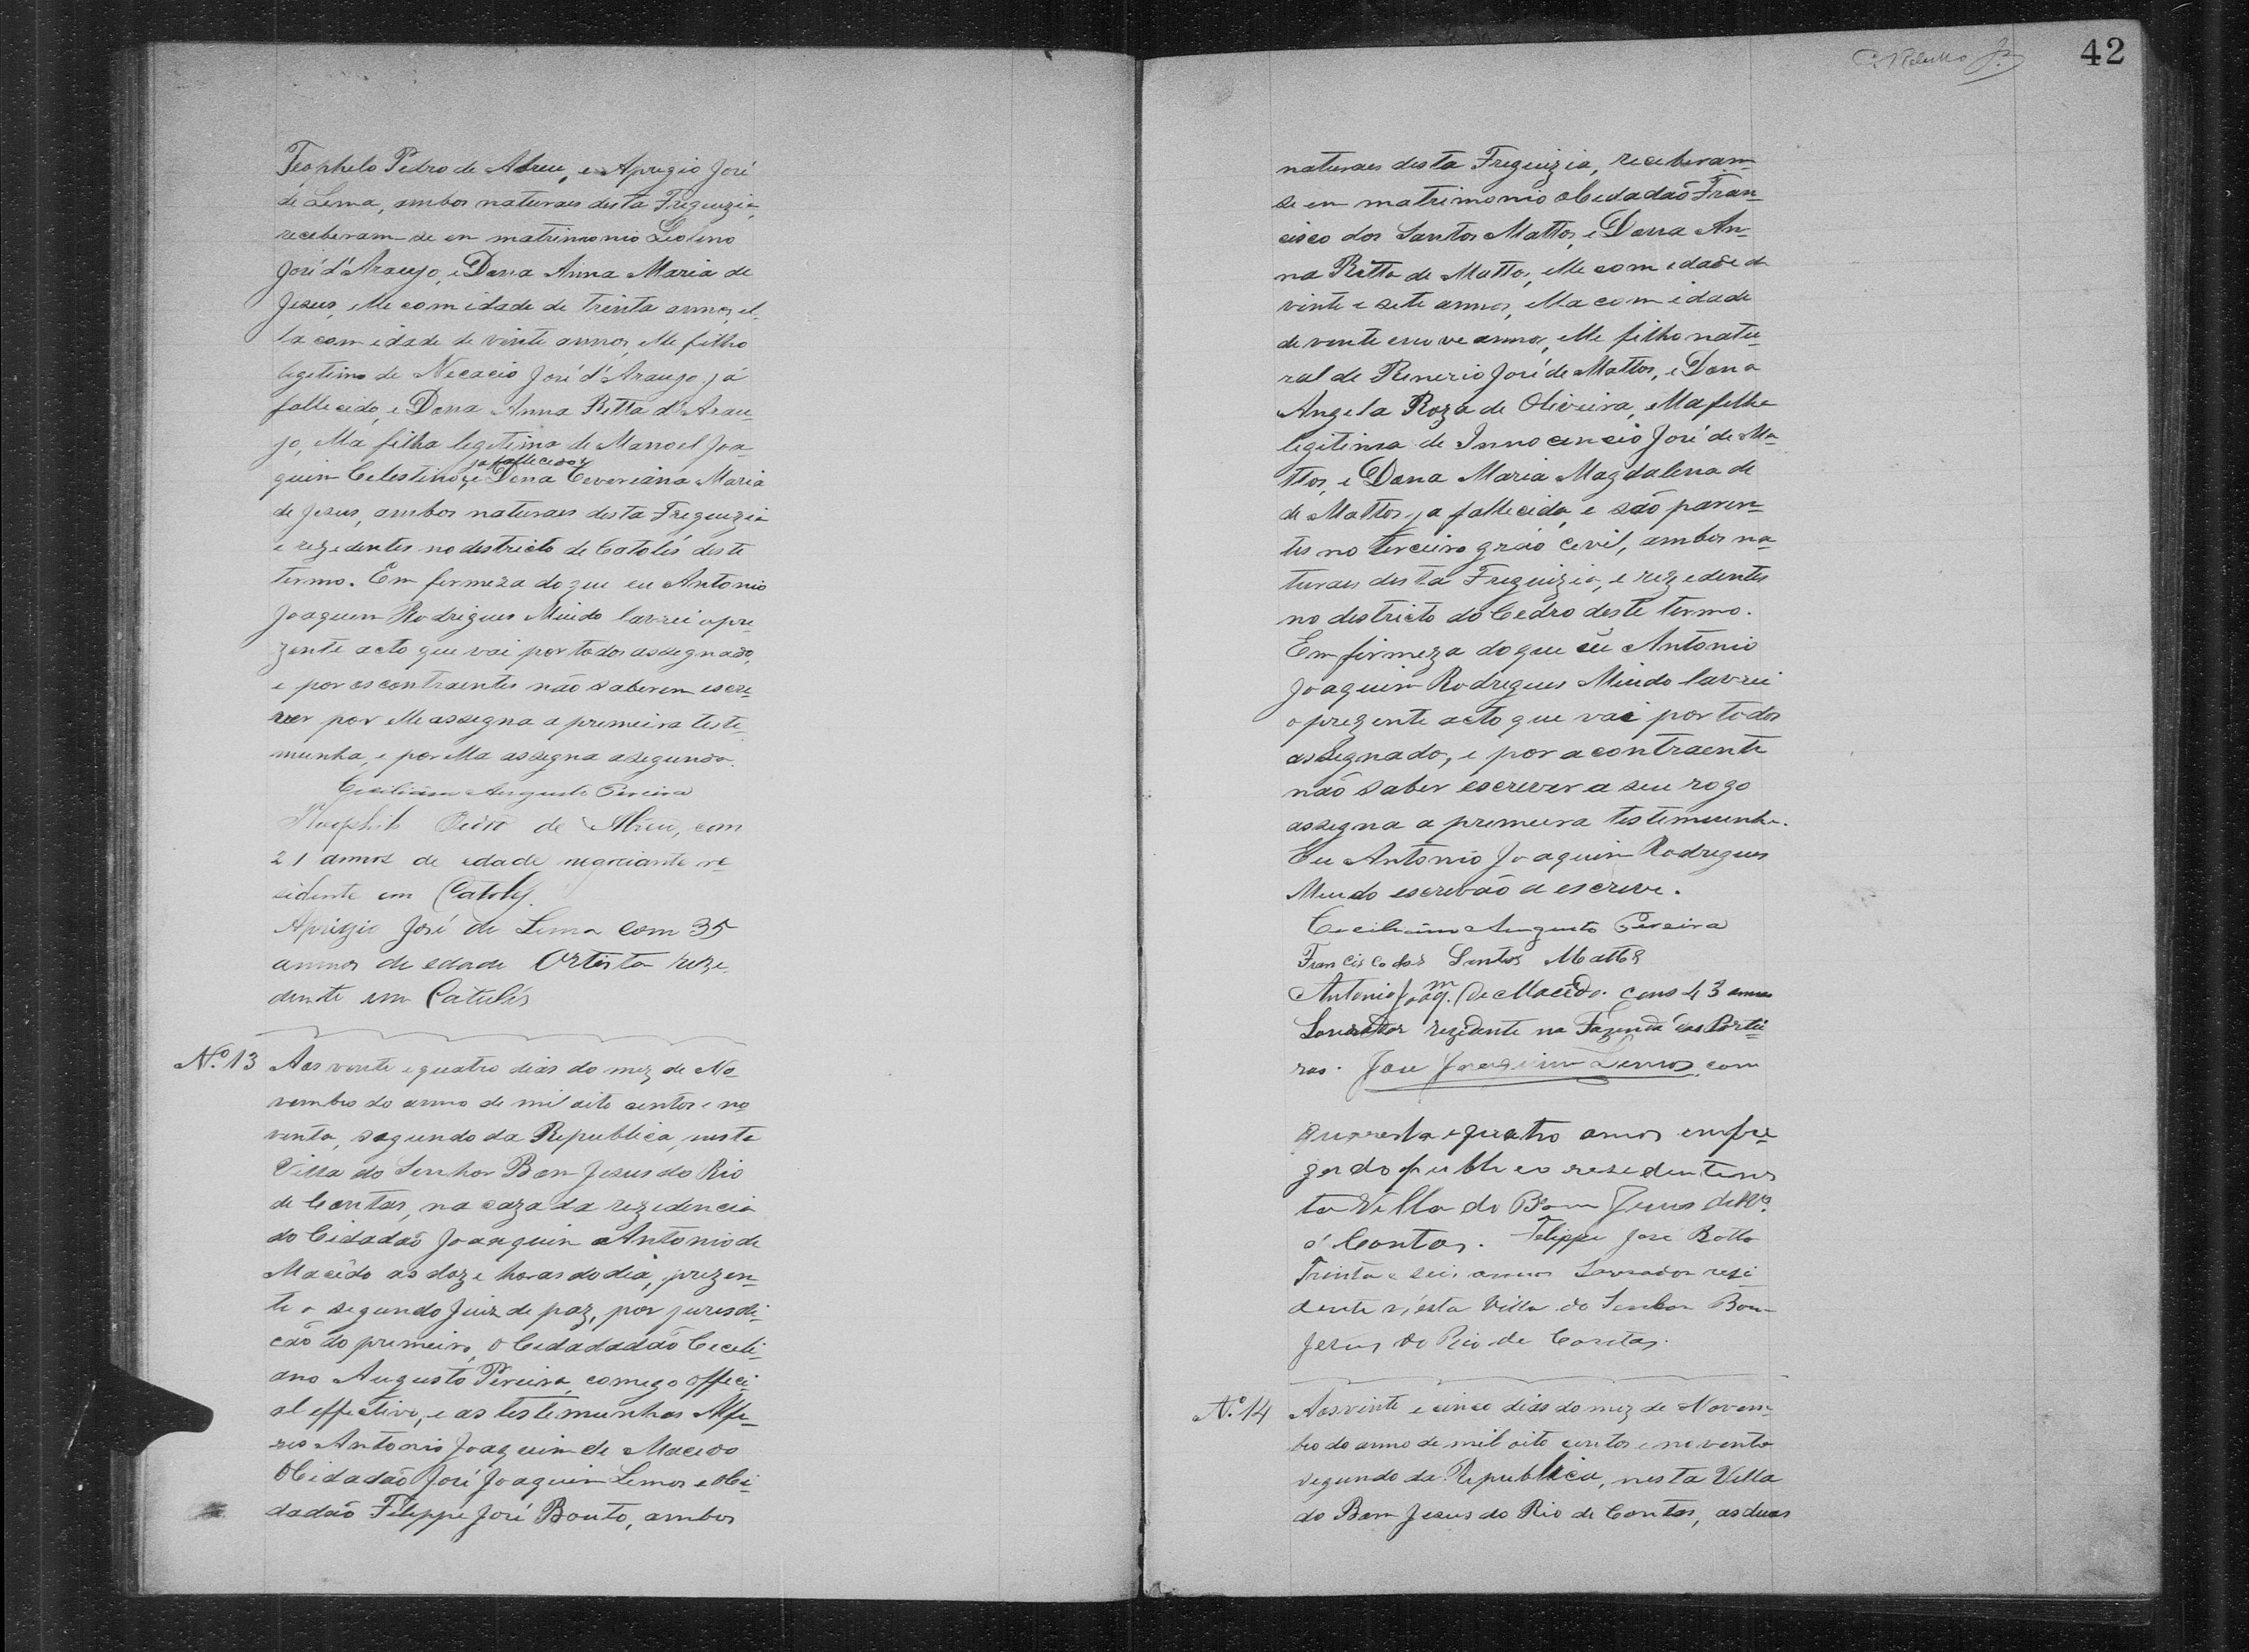 Teophelo Pedro de Abreu, e Aprigio José
de Lema, ambos naturaes desta Freguizia,
receberam-se em matrimonio Leolino
José d'Araujo, e Dona Anna Maria de
Jesus, elle com idade de trinta annos, el-
la com idade de vinte annos, elle filho
legetimo de Necacio José d'Araujo já
fallecido, e Dona Anna Ritta d'Arau-
jo, ella filha legetima de Manoel Joa-
quim Celestino, e Dona Ceveriana Maria
já fallecidos
de Jesus, ambos naturaes desta Freguizia
e rezedentes no destricto de Catolés deste
termo. Em fermeza do que eu Antonio
Joaquim Rodrigues Miudo lavrei o pre-
zente acto que vai por todos assegnado,
e por os contraentes não saberem escre-
ver por elle assegna a premeira teste-
munha, e por ella assegna a segunda.
Ceciliano Augusto Pereira
Pedro de Abreu, com
21 annos de edade negociante re
sidente em Catolés.
Aprizio José de Lema com 35
annos de edade Artista reze-
dente em Catulés
Nº 13 Aos vente e quatro dias do mez de No-
vembro do anno de mil oito centos e no
venta, segundo da Republica, nesta
Villa do Senhor Bom Jesus do Rio
de Contas, na caza da rezedencia
do Cidadão Joaquim Antonio de
Macêdo as doze horas do dia, prezen-
te o segundo Juiz de paz, por juresdi-
cão do premeiro, o Cedadadão Ceceli-
ano Augusto Pereira, comego offeci-
al effectivo, e as testemunhas Alfe-
res Antonio Joaquim de Macedo
o Cidadão José Joaquim Lemos e o Ci-
dadão Felippe José Bouto, ambos
42
naturaes desta Freguizia, receberam-
se em matrimonio o Cedadão Fran-
cisco dos Santos Mattos, e Dona An-
na Ritta de Mattos, elle com edade de
vinte e sete annos, ella com idade
de vente e nove annos, elle filho natu-
ral de Renerio José de Mattos, e Dona
Angela Roza de Oliveira, ella felha
legitima de Innocencio José de Ma-
ttos, e Dona Maria Magdalena de
de Mattos já fallecida, e são paren-
tes no terceiro gráo Cevil, ambos na-
turaes desta Freguizia, e rezedentes
no destricto do Cedro deste termo.
Em firmeza do que eu Antonio
Joaquim Rodregues Miudo lavrei
o prezente acto que vai por todos
assegnado, e por a contraente
não saber escrever a seu rogo
assegna a premeira testemunha.
Eu Antonio Joaquim Rodregues
Miudo escrevão a escreve.
Ceciliano Augusto Pereira
Francisco dos Santos Mattos
Antonio Joaqm. de Macêdo. com 43 annos
Lavrador rezidante na Fazenda das Portei-
ras. José Joaquim Lemos, com
quarenta e quatro annos empre-
gado publico resedente nes
ta Villa do Bom Jesus do Rº
d' Contas. Felippe José Botto
Trinta e seis annos Lavrador resi-
dente n'esta Villa do Senhor Bom
Jesus do Rio de Contas.
Nº 14 Aos vinte e cinco dias do mez de Novem-
bro do anno de mil oito centos e noventa
segundo da Republica, nesta Villa
do Bom Jesus do Rio de Contas, as duas